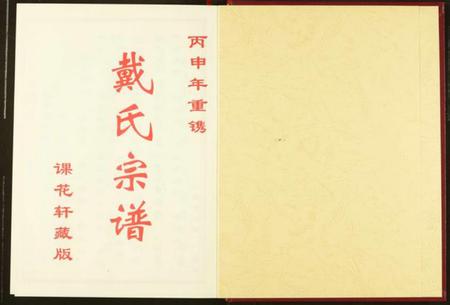 丙申年重镌
戴氏宗谱
课花轩藏版